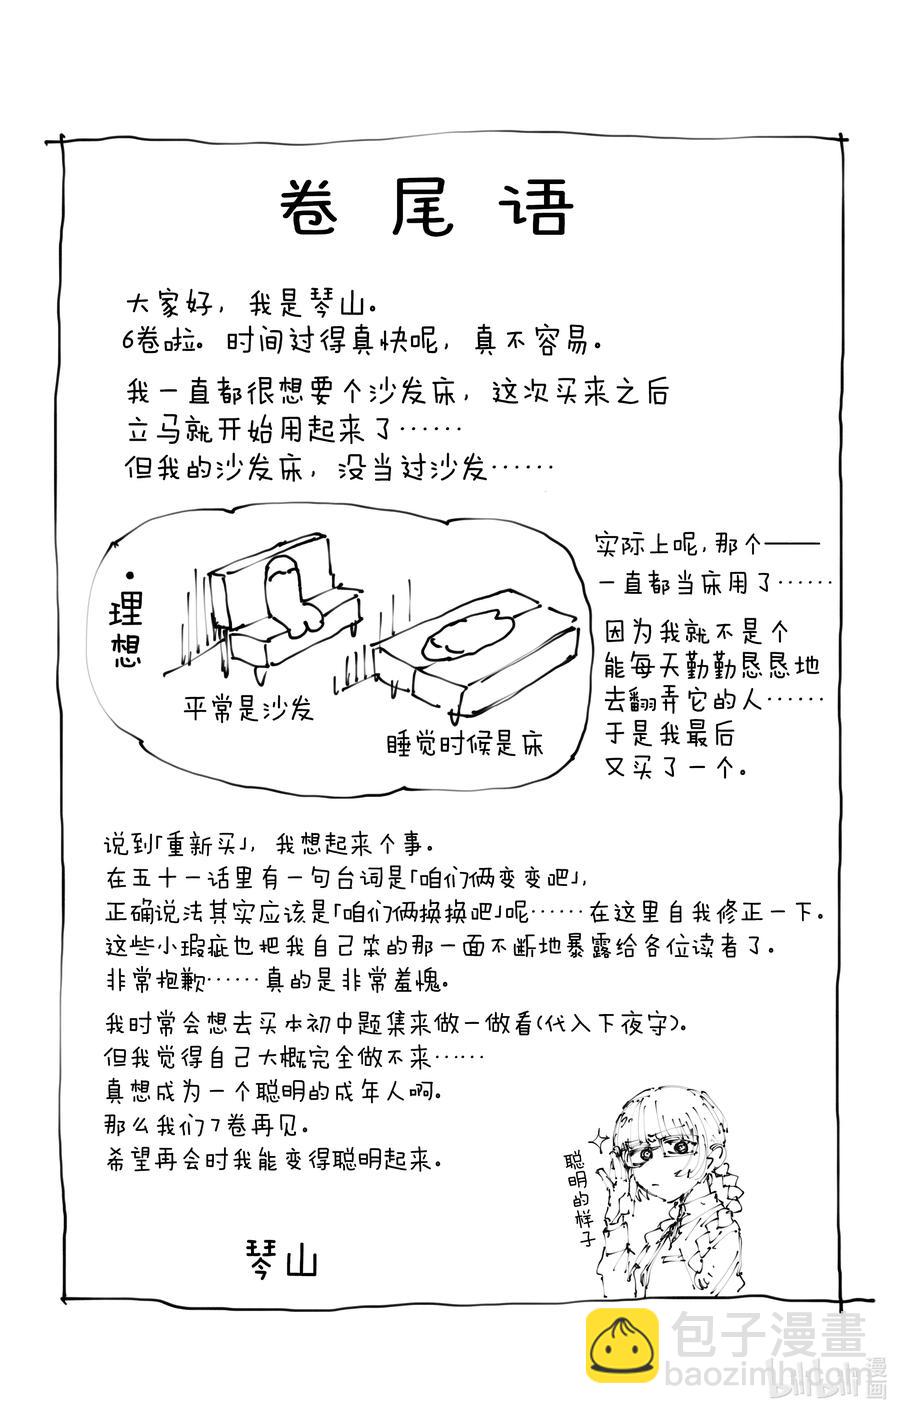 卷尾语
大家好，我是琴山。
6卷啦。时间过得真快呢，真不容易。
我一直都很想要个沙发床，这次买来之后
立马就开始用起来了……
但我的沙发床，没当过沙发……
·理想
平常是沙发
睡觉时候是床
实际上呢，那个——
一直都当床用了……
因为我就不是个
能每天勤勤恳恳地
去翻弄它的人……
于是我最后
又买了一个。
说到「重新买」，我想起来个事。
在五十一话里有一句台词是「咱们俩变变吧」，
正确说法其实应该是「咱们俩换换吧」呢……在这里自我修正一下。
这些小瑕疵也把我自己笨的那一面不断地暴露给各位读者了。
非常抱歉……真的是非常羞愧。
我时常会想去买本初中题集来做一做看(代入下夜守)。
但我觉得自己大概完全做不来……
真想成为一个聪明的成年人啊。
那么我们7卷再见。
希望再会时我能变得聪明起来。
聪明的样子
琴山
包子漫畫
baozimh.com
bilibili
漫画